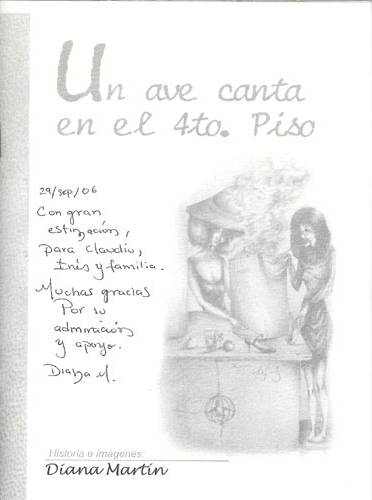 Un ave canta
en el 4to. Piso
29/sep/06
Con gran
estimación,
para Claudio,
Inés y familia.
Muchas gracias
Por su
admiración
y apoyo.
Diana M.
Historia e imágenes:
Diana Martín